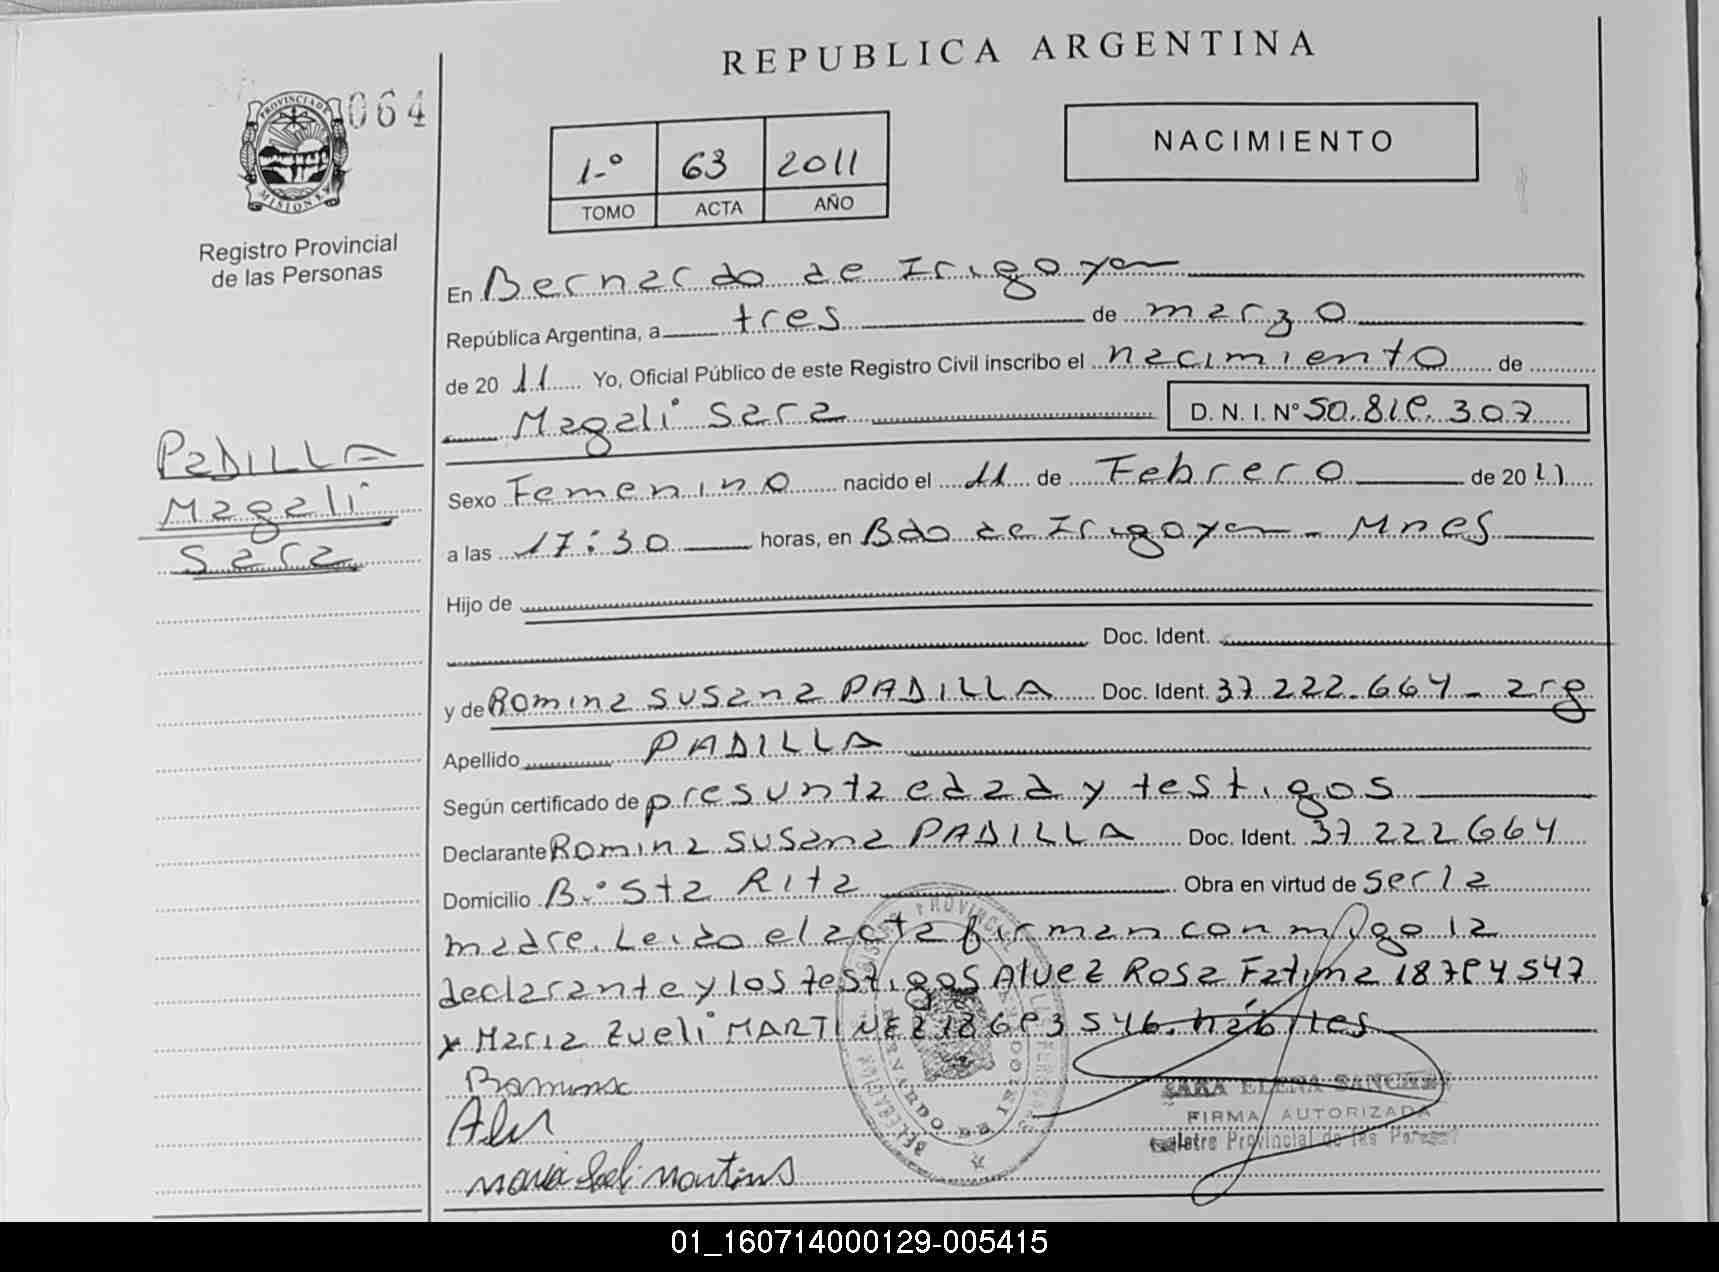 REPUBLICA ARGENTINA
064
PROVINCIA DE MISIONES
Registro Provincial
de las Personas
1-º 63 2011
TOMO ACTA AÑO
NACIMIENTO
En Bernardo de Irigoyen
República Argentina, a tres de marzo
de 20 11 Yo, Oficial Público de este Registro Civil inscribo el nacimiento de
Magali Sara D. N. I. Nº 50.819.307
PADILLA
Magali
Sara
Sexo Femenino nacido el 11 de Febrero de 20 11
a las 17:30 horas, en Bdo de Irigoyen - Mnes
Hijo de
Doc. Ident.
y de Romina Susana PADILLA Doc. Ident. 37.222.664 - arg
Apellido PADILLA
Según certificado de presunta edad y testigos
Declarante Romina Susana PADILLA Doc. Ident. 37.222.664
Domicilio B.º Sta Rita Obra en virtud de ser la
madre. Leido el acta firman conmigo la
declarante y los testigos Alvez Rosa Fatima 18794547
y Maria Zueli MARTINEZ 18693546. hábiles
Romina
SARA ELENA SANCHEZ
FIRMA AUTORIZADA
Registro Provincial de las Personas
01_160714000129-005415